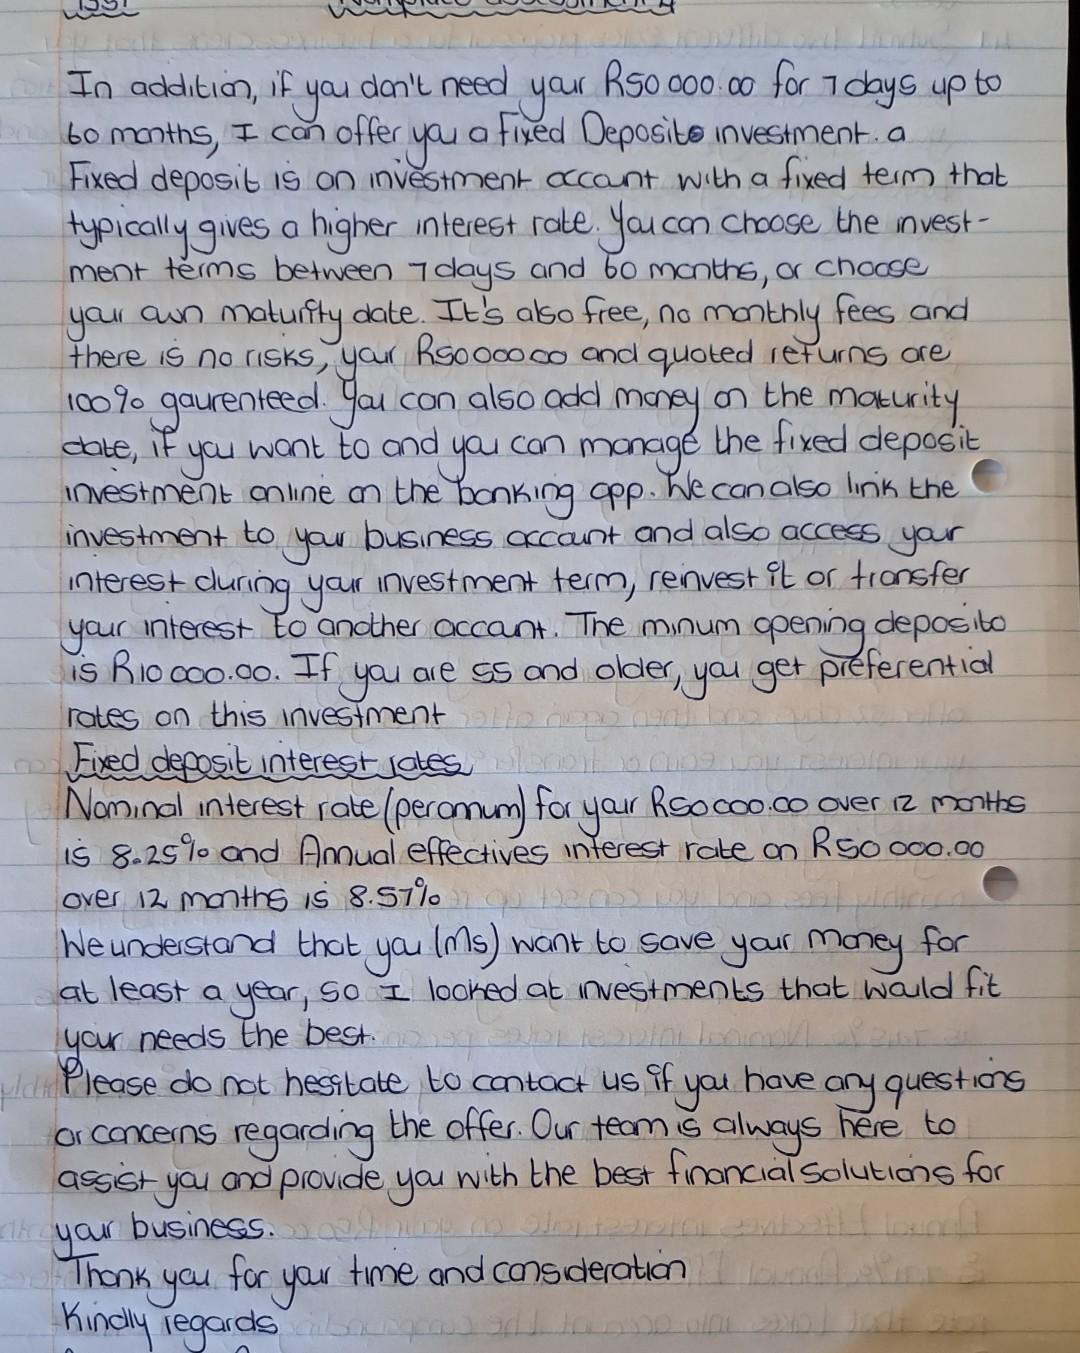 In addition, if you don't need your R50 000.00 for 7 days up to
60 months, I can offer you a fixed Deposito investment. a
Fixed deposit is an investment account with a fixed term that
typically gives a higher interest rate. You can choose the invest-
ment terms between 7 days and 60 months, or choose
your own maturity date. It's also free, no monthly fees and
there is no risks, your R50 000 00 and quoted returns are
100% gaurenteed. You can also add money on the maturity
date, if you want to and you can manage the fixed deposit
investment online on the banking app. We can also link the
investment to your business account and also access your
interest during your investment term, reinvest it or transfer
your interest to another account. The minum opening deposito
is R10 000.00. If you are 55 and older, you get preferential
rates on this investment
Fixed deposit interest rates
Nominal interest rate (per annum) for your R50 000.00 over 12 months
is 8.25% and Annual effectives interest rate on R50 000.00
over 12 months is 8.57%
We understand that you (Ms) want to save your money for
at least a year, so I looked at investments that would fit
your needs the best.
Please do not hesitate to contact us if you have any questions
or concerns regarding the offer. Our team is always here to
assist you and provide you with the best financial solutions for
your business.
Thank you for your time and consideration
Kindly regards